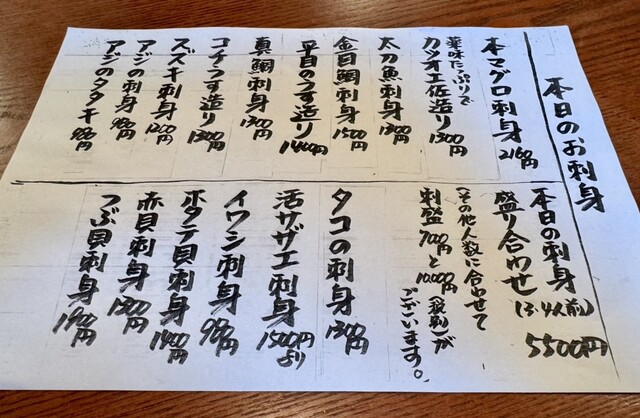 本日のお刺身
本マグロ刺身 2160円
薬味たっぷりで
カツオ土佐造り 1300円
太刀魚刺身 1300円
金目鯛刺身 1500円
平目のうす造り 1400円
真鯛刺身 1300円
コチうす造り 1300円
スズキ刺身 1200円
アジの刺身 980円
アジのタタキ 980円
本日の刺身
盛り合わせ (3・4人前) 5500円
(その他人数に合わせて
刺盛 7000円と10,000円(税別)が
ございます。
タコの刺身 1300円
活サザエ刺身 1500円より
イワシ刺身 980円
ホタテ貝刺身 1400円
赤貝刺身 1300円
つぶ貝刺身 1900円